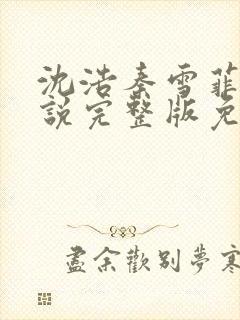 沈浩秦雪菲
说完整版免
盡余歡别夢寒